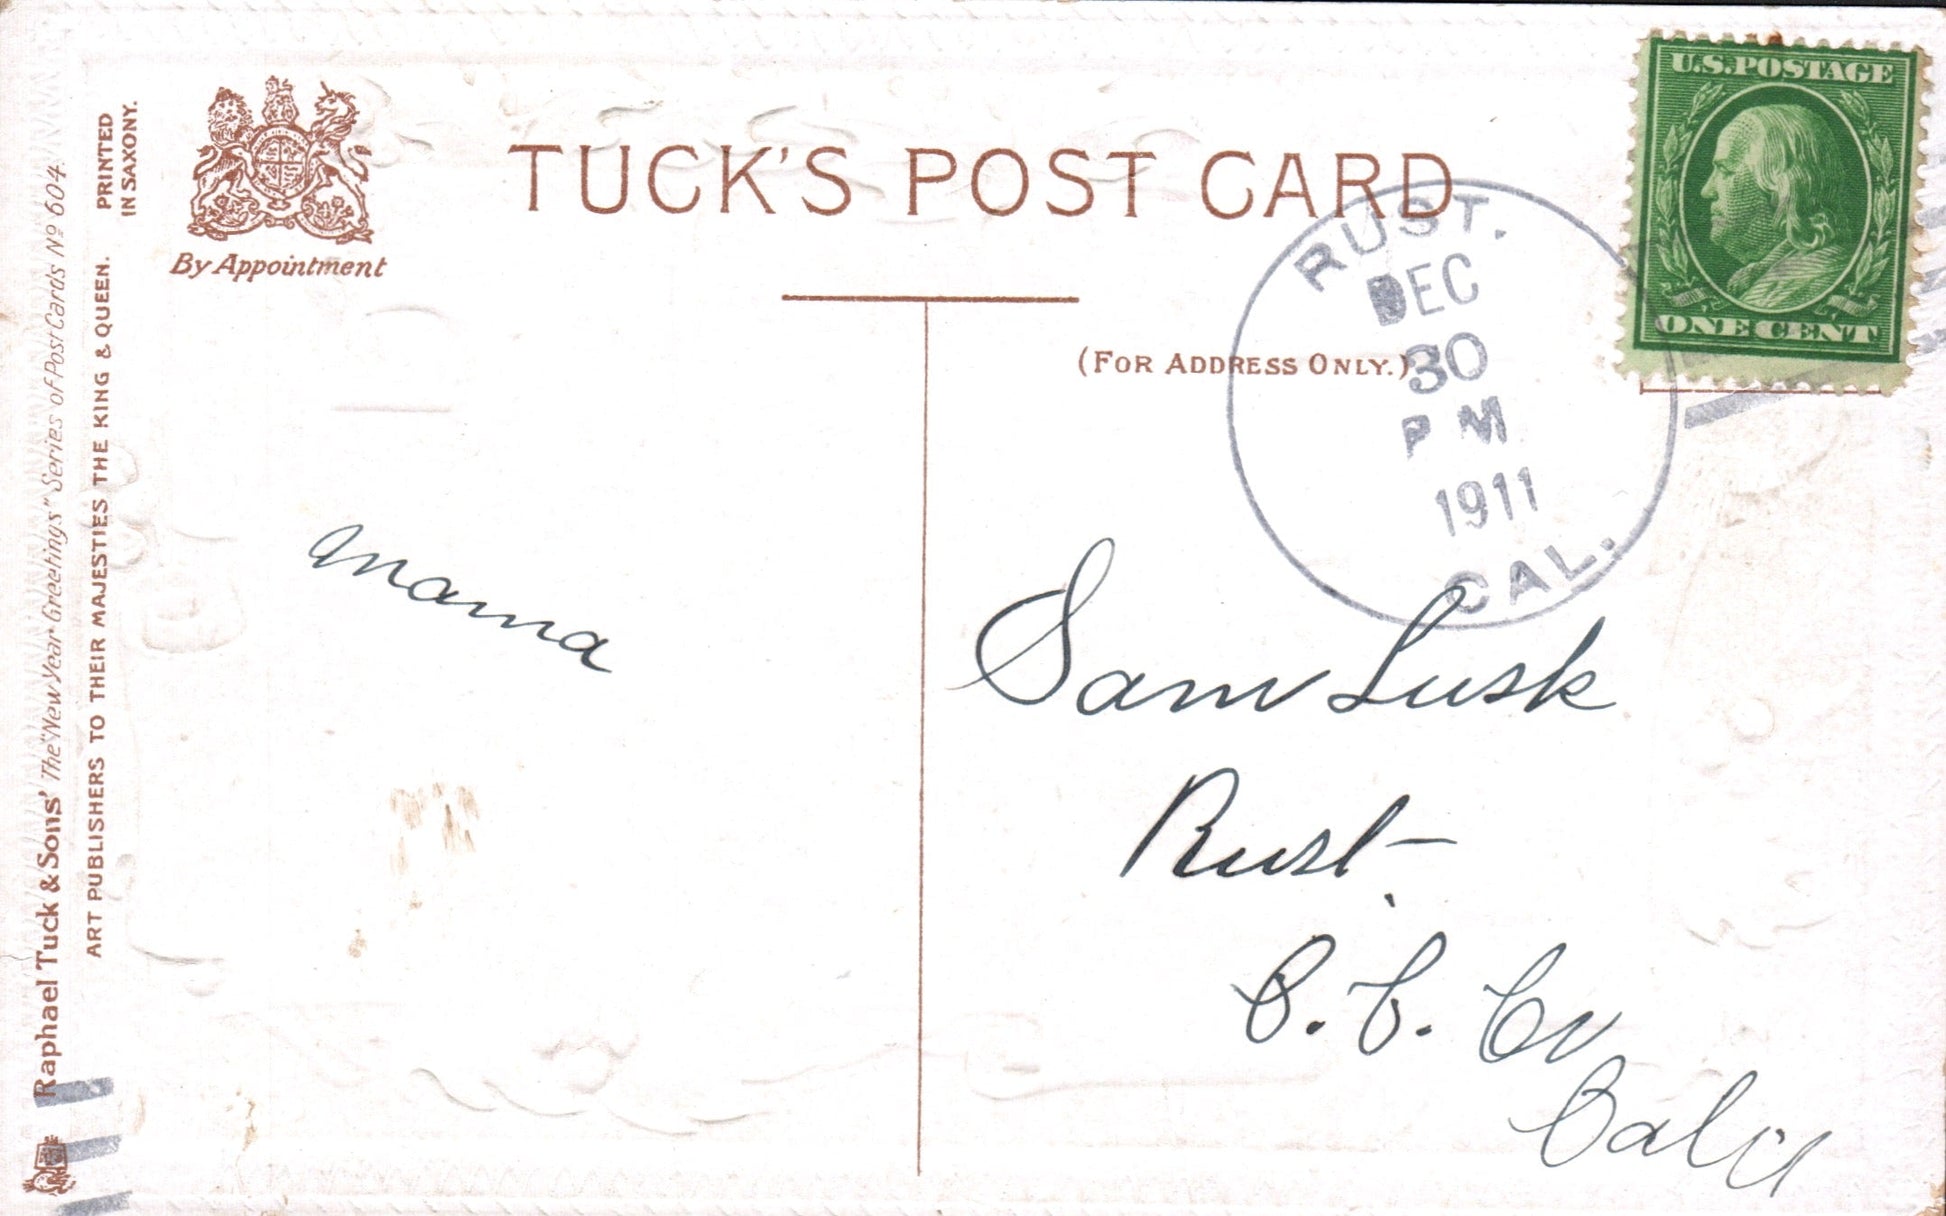 TUCK'S POST CARD
By Appointment
PRINTED
IN SAXONY.
Raphael Tuck & Sons' The "New Year Greetings" Series of Post Cards No 604.
ART PUBLISHERS TO THEIR MAJESTIES THE KING & QUEEN.
(FOR ADDRESS ONLY.)
U.S. POSTAGE
ONE CENT
RUST.
DEC
30
PM
1911
CAL.
Mama
Sam Lusk
Rust
C. C. Co